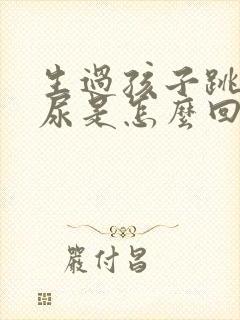 生過孩子跳
尿是怎麼回
嚴付昌